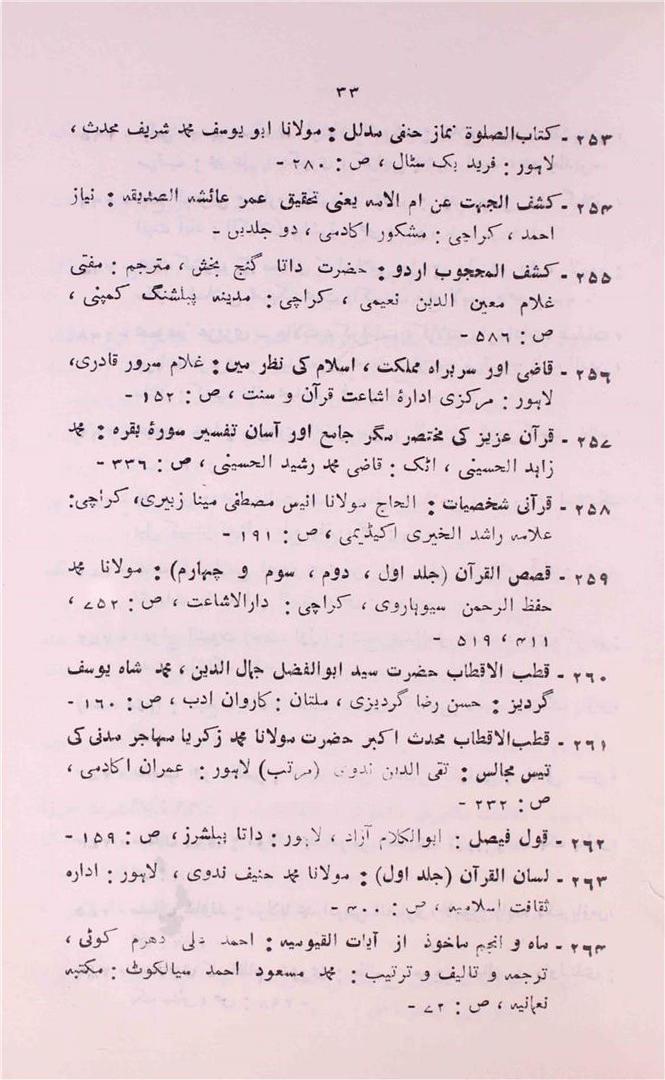 ۳۳
۲۵۳ - کتاب الصلوۃ نماز حنفی مدلل : مولانا ابو یوسف محمد شریف محدث ،
لاہور : فرید بک سٹال ، ص : ۲۸۰ -
۲۵۴ - کشف الجہت عن ام الامہ یعنی تحقیق عمر عائشہ الصدیقہ : نیاز
احمد ، کراچی : مشکور اکادمی ، دو جلدیں -
۲۵۵ - کشف المحجوب اردو : حضرت داتا گنج بخش ، مترجم : مفتی
غلام معین الدین نعیمی ، کراچی : مدینہ پبلشنگ کمپنی ،
ص : ۵۸۶ -
۲۵۶ - قاضی اور سربراہ مملکت ، اسلام کی نظر میں : غلام سرور قادری ،
لاہور : مرکزی ادارۂ اشاعت قرآن و سنت ، ص : ۱۵۲ -
۲۵۷ - قرآن عزیز کی مختصر مگر جامع اور آسان تفسیر سورۂ بقرہ : محمد
زاہد الحسینی ، اٹک : قاضی محمد رشید الحسینی ، ص : ۳۳۶ -
۲۵۸ - قرآنی شخصیات : الحاج مولانا انیس مصطفی مینا زبیری ، کراچی :
علامہ راشد الخیری اکیڈیمی ، ص : ۱۹۱ -
۲۵۹ - قصص القرآن (جلد اول ، دوم ، سوم و چہارم) : مولانا محمد
حفظ الرحمن سیوہاروی ، کراچی : دارالاشاعت ، ص : ۷۵۲ ،
۴۱۱ ، ۵۱۹ -
۲۶۰ - قطب الاقطاب حضرت سید ابوالفضل جمال الدین ، محمد شاہ یوسف
گردیز : حسن رضا گردیزی ، ملتان : کاروان ادب ، ص : ۱۶۰ -
۲۶۱ - قطب الاقطاب محدث اکبر حضرت مولانا محمد زکریا مہاجر مدنی کی
تیس مجالس : تقی الدین ندوی (مرتب) لاہور : عمران اکادمی ،
ص : ۲۳۲ -
۲۶۲ - قول فیصل : ابوالکلام آزاد ، لاہور : داتا پبلشرز ، ص : ۱۵۹ -
۲۶۳ - لسان القرآن (جلد اول) : مولانا محمد حنیف ندوی ، لاہور : ادارہ
ثقافت اسلامیہ ، ص : ۴۰۰ -
۲۶۴ - ماہ و انجم ماخوذ از آیات القیومیہ : احمد علی دھرم کوٹی ،
ترجمہ و تالیف و ترتیب : محمد مسعود احمد سیالکوٹ : مکتبہ
نعمانیہ ، ص : ۷۲ -